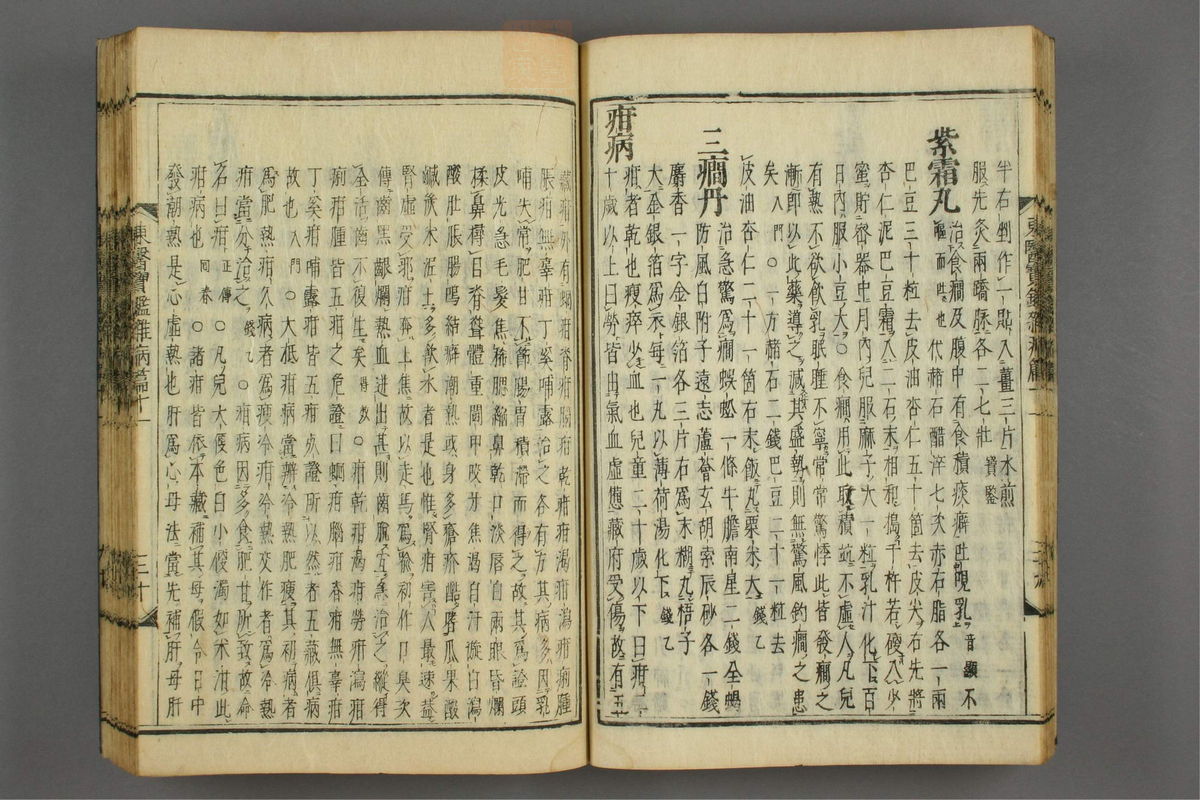 半右剉作一貼入薑三片水煎
服先灸兩蹻脉各二七壯 寶鑑
紫霜丸 治食癎及腹中有食積痰癖吐哯乳 音顯不
嘔而吐也 代赭石醋淬七次赤石脂各一兩
巴豆三十粒去皮油杏仁五十箇去皮尖右先將
杏仁泥巴豆霜入二石末相和搗千杵若硬入少
蜜貯密器中月內兒服麻子大一粒乳汁化下百
日內服小豆大○食癎用此取積並不虛人凡兒
有熱不欲飮乳眠睡不寧常常驚悸此皆發癎之
漸卽以此藥導之減其盛勢則無驚風釣癎之患
矣 入門 ○一方赭石二錢巴豆二十一粒去
皮油杏仁二十一箇右末飯丸粟米大 錢乙
三癎丹 治急驚爲癎蜈蚣一條牛膽南星二錢全蝎
防風白附子遠志蘆薈玄胡索辰砂各一錢
麝香一字金銀箔各三片右爲末糊丸梧子
大金銀箔爲衣每一丸以薄荷湯化下 錢乙
疳病 疳者乾也瘦瘁少血也兒童二十歲以下曰疳二
十歲以上曰勞皆由氣血虛憊藏府受傷故有五
藏疳外有蛔疳脊疳腦疳乾疳疳渴疳瀉疳病腫
脹疳無辜疳丁奚哺露治之各有方其病多因乳
哺失常肥甘不節腸胃積滯而得之故其爲證頭
皮光急毛髮焦稀腮縮鼻乾口淡唇白兩眼昏爛
揉鼻撏目脊聳體重鬪甲咬牙焦渴自汗尿白瀉
酸肚脹腸鳴結癖潮熱或身多瘡疥酷嗜瓜果酸
鹹炭米泥土多飮水者是也惟腎疳害人最速蓋
腎虛受邪奔上焦故以走馬爲喩初作口臭次
傳齒黑齦爛熱血迸出甚則齒脫宜急治之縱得
全活齒不復生矣 得效 ○疳乾疳渴疳勞疳瀉疳
痢疳腫皆五疳之危證曰蛔疳腦疳脊疳無辜疳
丁奚疳哺露疳皆五疳必證所以然者五藏俱病
故也 入門 ○大低疳病當辨冷熱肥瘦其初病者
爲肥熱疳久病者爲瘦冷疳冷熱交作者爲冷熱
疳當分治之 錢乙 ○疳病因多食肥甘所致故命
名曰疳 正傳 ○凡兒大便色白小便濁如米泔此
疳病也 回春 ○諸疳皆依本藏補其母假令日中
發潮熱是心虛熱也肝爲心母法當先補肝母肝
東醫寶鑑雜病篇十一 三十